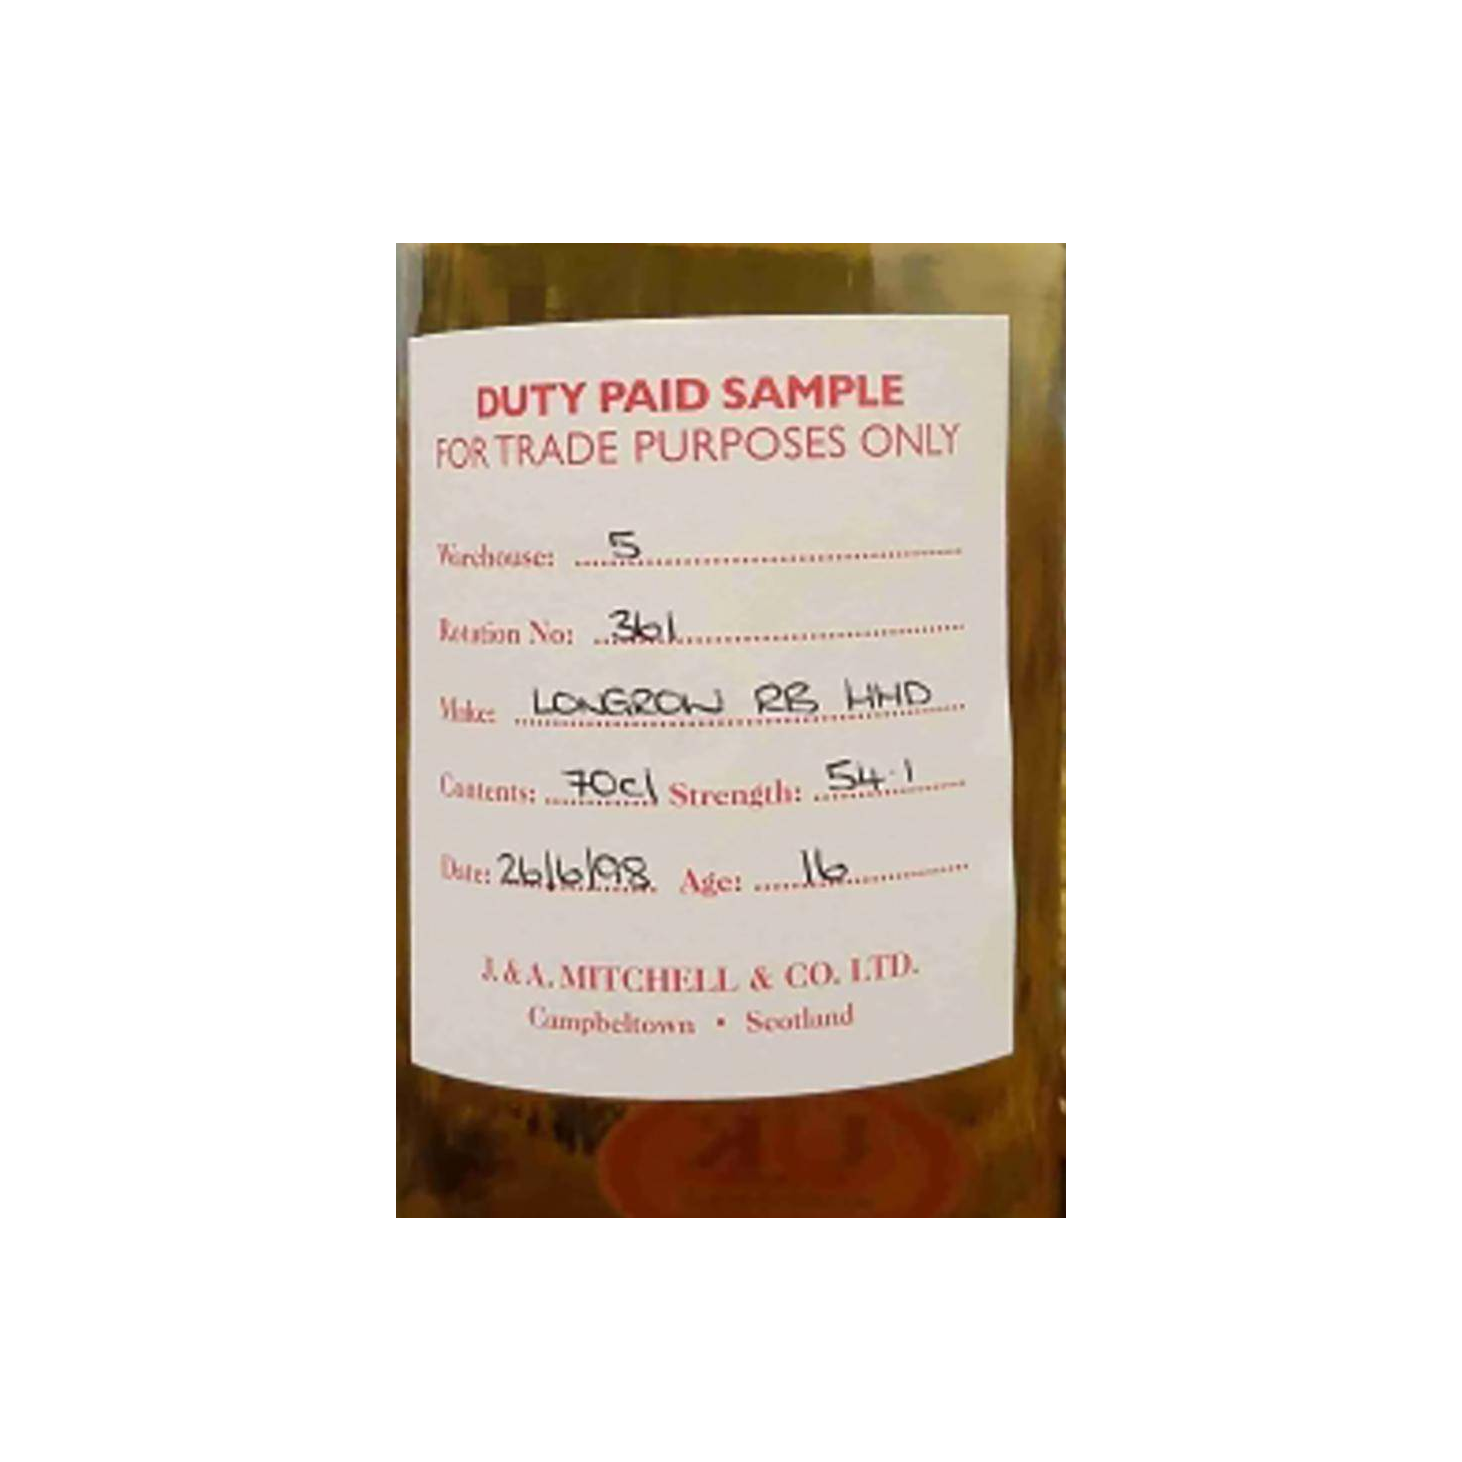 DUTY PAID SAMPLE
FOR TRADE PURPOSES ONLY
Warehouse: 5
Rotation No: 361
Make: LONGROW RB HHD
Contents: 70cl Strength: 54.1
Date: 26/6/98 Age: 16
J. & A. MITCHELL & CO. LTD.
Campbeltown • Scotland